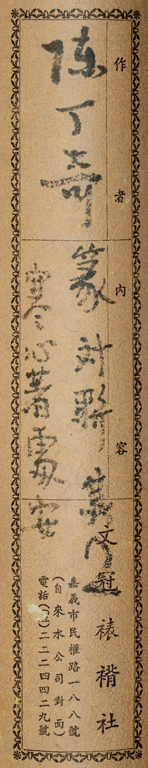 作者
陳丁奇
內容
篆对
心著處安
文冠裱褙社
嘉義市民權路一八八號
(自來水公司對面)
電話(〇五)二二二四四二九號